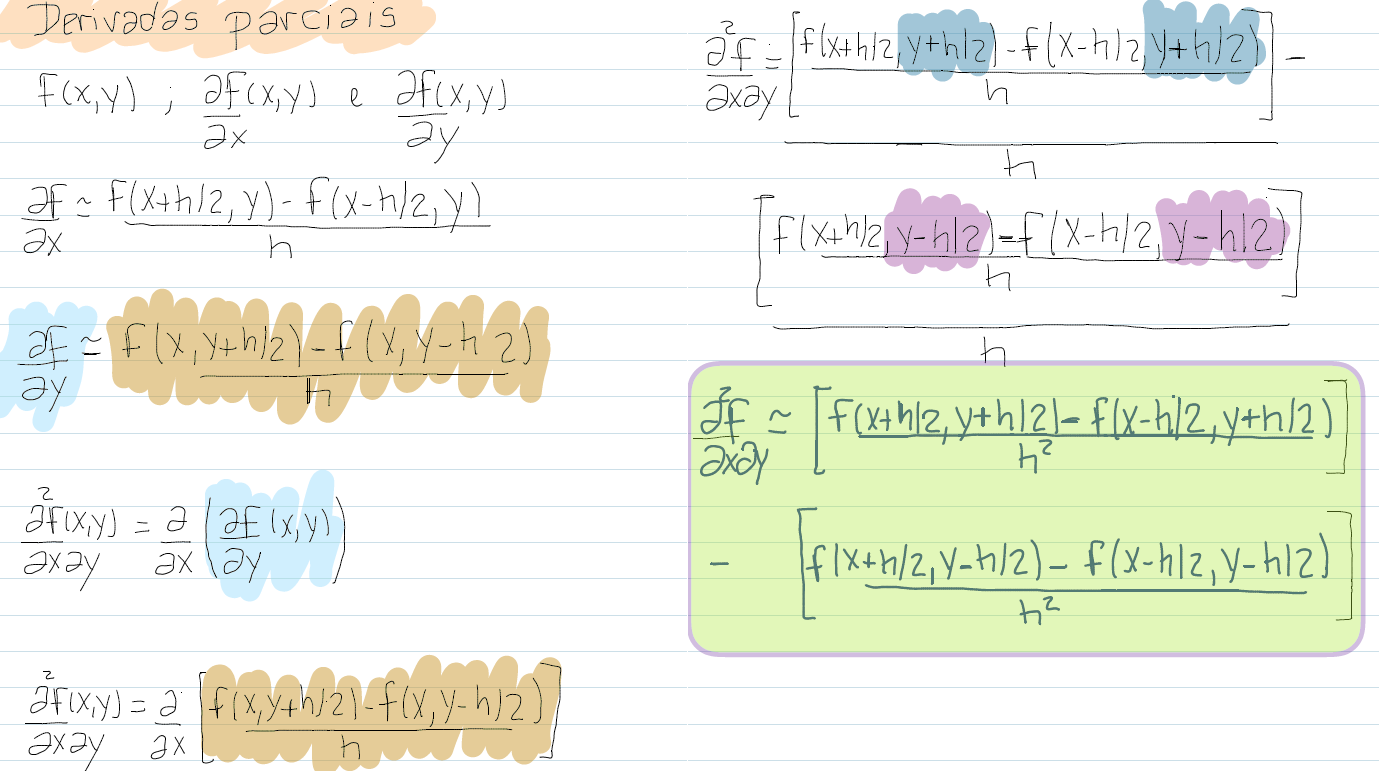 Derivadas parciais
F(x,y) ; ∂f(x,y)/∂x e ∂f(x,y)/∂y
∂f/∂x ≃ f(x+h/2, y) - f(x-h/2, y) / h
∂f/∂y ≃ f(x, y+h/2) - f(x, y-h 2) / h
∂²f(x,y)/∂x∂y = ∂/∂x (∂f(x,y)/∂y)
∂²f(x,y)/∂x∂y = ∂/∂x [f(x,y+h/2) - f(x,y-h/2) / h]
∂²f/∂x∂y = [f(x+h/2, y+h/2) - f(x-h/2, y+h/2) / h] / h -
[f(x+h/2, y-h/2) - f(x-h/2, y-h/2) / h] / h
∂²f/∂x∂y ≃ [f(x+h/2, y+h/2) - f(x-h/2, y+h/2) / h²]
- [f(x+h/2, y-h/2) - f(x-h/2, y-h/2) / h²]